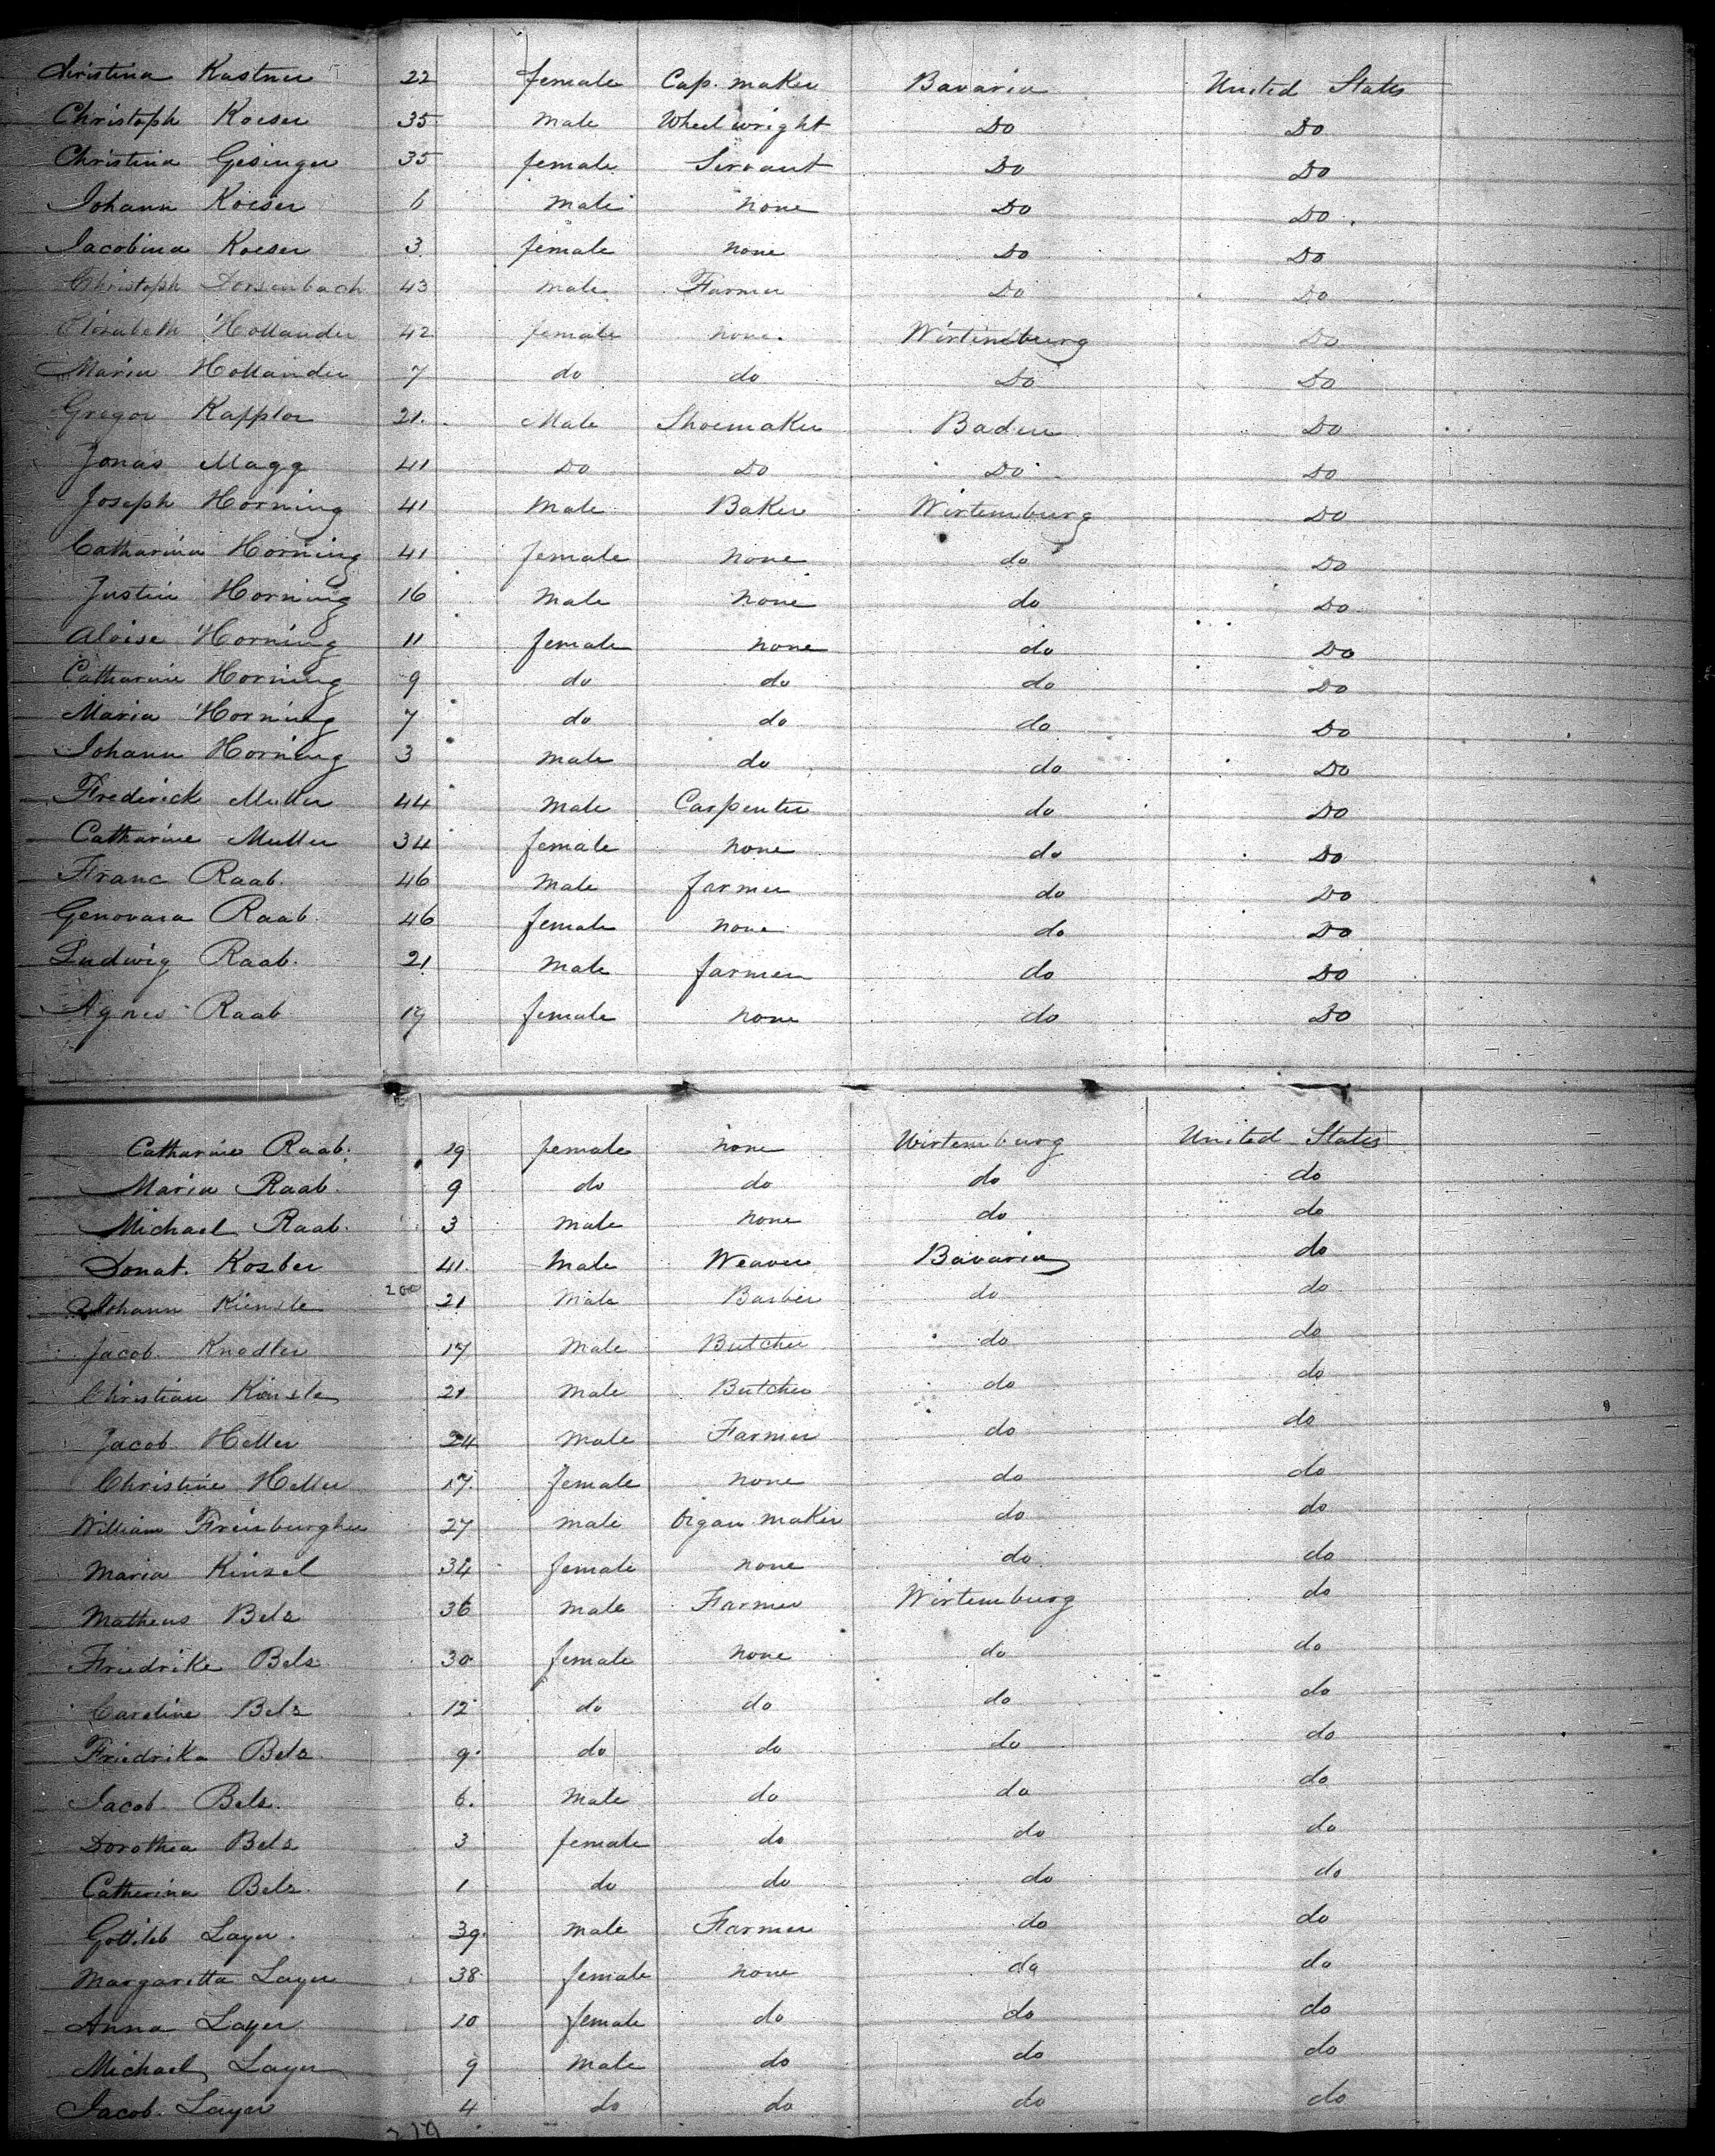 Christina Kastner 22 female Cap. maker Bavaria United States
Christoph Koeser 35 Male Wheelwright Do Do
Christina Gesinger 35 female Servant Do Do
Johann Koeser 6 Male none Do Do
Jacobina Koeser 3 female none Do Do
Christoph Dorsenbach 43 Male Farmer Do Do
Elisabeth Hollander 42 female none. Wirtemburg Do
Maria Hollander 7 do do Do Do
Gregor Kappler 21. Male Shoemaker Baden Do
Jonas Magg 41 Do Do Do Do
Joseph Horning 41 Male Baker Wirtemburg Do
Catharina Horning 41 female none do Do
Justin Horning 16 Male none do Do
Aloise Horning 11 female none do Do
Catharine Horning 9 do do do Do
Maria Horning 7 do do do Do
Johann Horning 3 Male do do Do
Frederick Muller 44 Male Carpenter do Do
Catharine Muller 34 female none do Do
Franc Raab. 46 Male farmer do Do
Genovara Raab. 46 female none do Do
Ludwig Raab. 21 Male farmer do Do
Agnes Raab 19 female none do Do
Catharine Raab. 19 female none Wirtemburg United States
Maria Raab. 9 do do do do
Michael Raab. 3 male none do do
Donat. Kosber 41. Male Weaver Bavaria do
Johann Kiensle 200 21 Male Barber do do
Jacob. Knodler 17 Male Butcher do do
Christian Kinsle 21 Male Butcher do do
Jacob. Heller 24 Male Farmer do do
Christine Heller 17. female none do do
William Freisburgher 27 male Organ maker do do
Maria Kinsel 34 female none do do
Matheus Bels 36 Male Farmer Wirtemburg do
Friedrike Bels 30 female none do do
Caroline Bels 12 do do do do
Friedrika Bels 9 do do do do
Jacob. Bels. 6. Male do do do
Dorothea Bels 3 female do do do
Catherina Bels. 1 do do do do
Gottileb Layer. 39. Male Farmer do do
Margaretta Layer 38. female none do do
Anna Layer 10 female do do do
Michael Layer 9 Male do do do
Jacob. Layer 4 do do do do
219